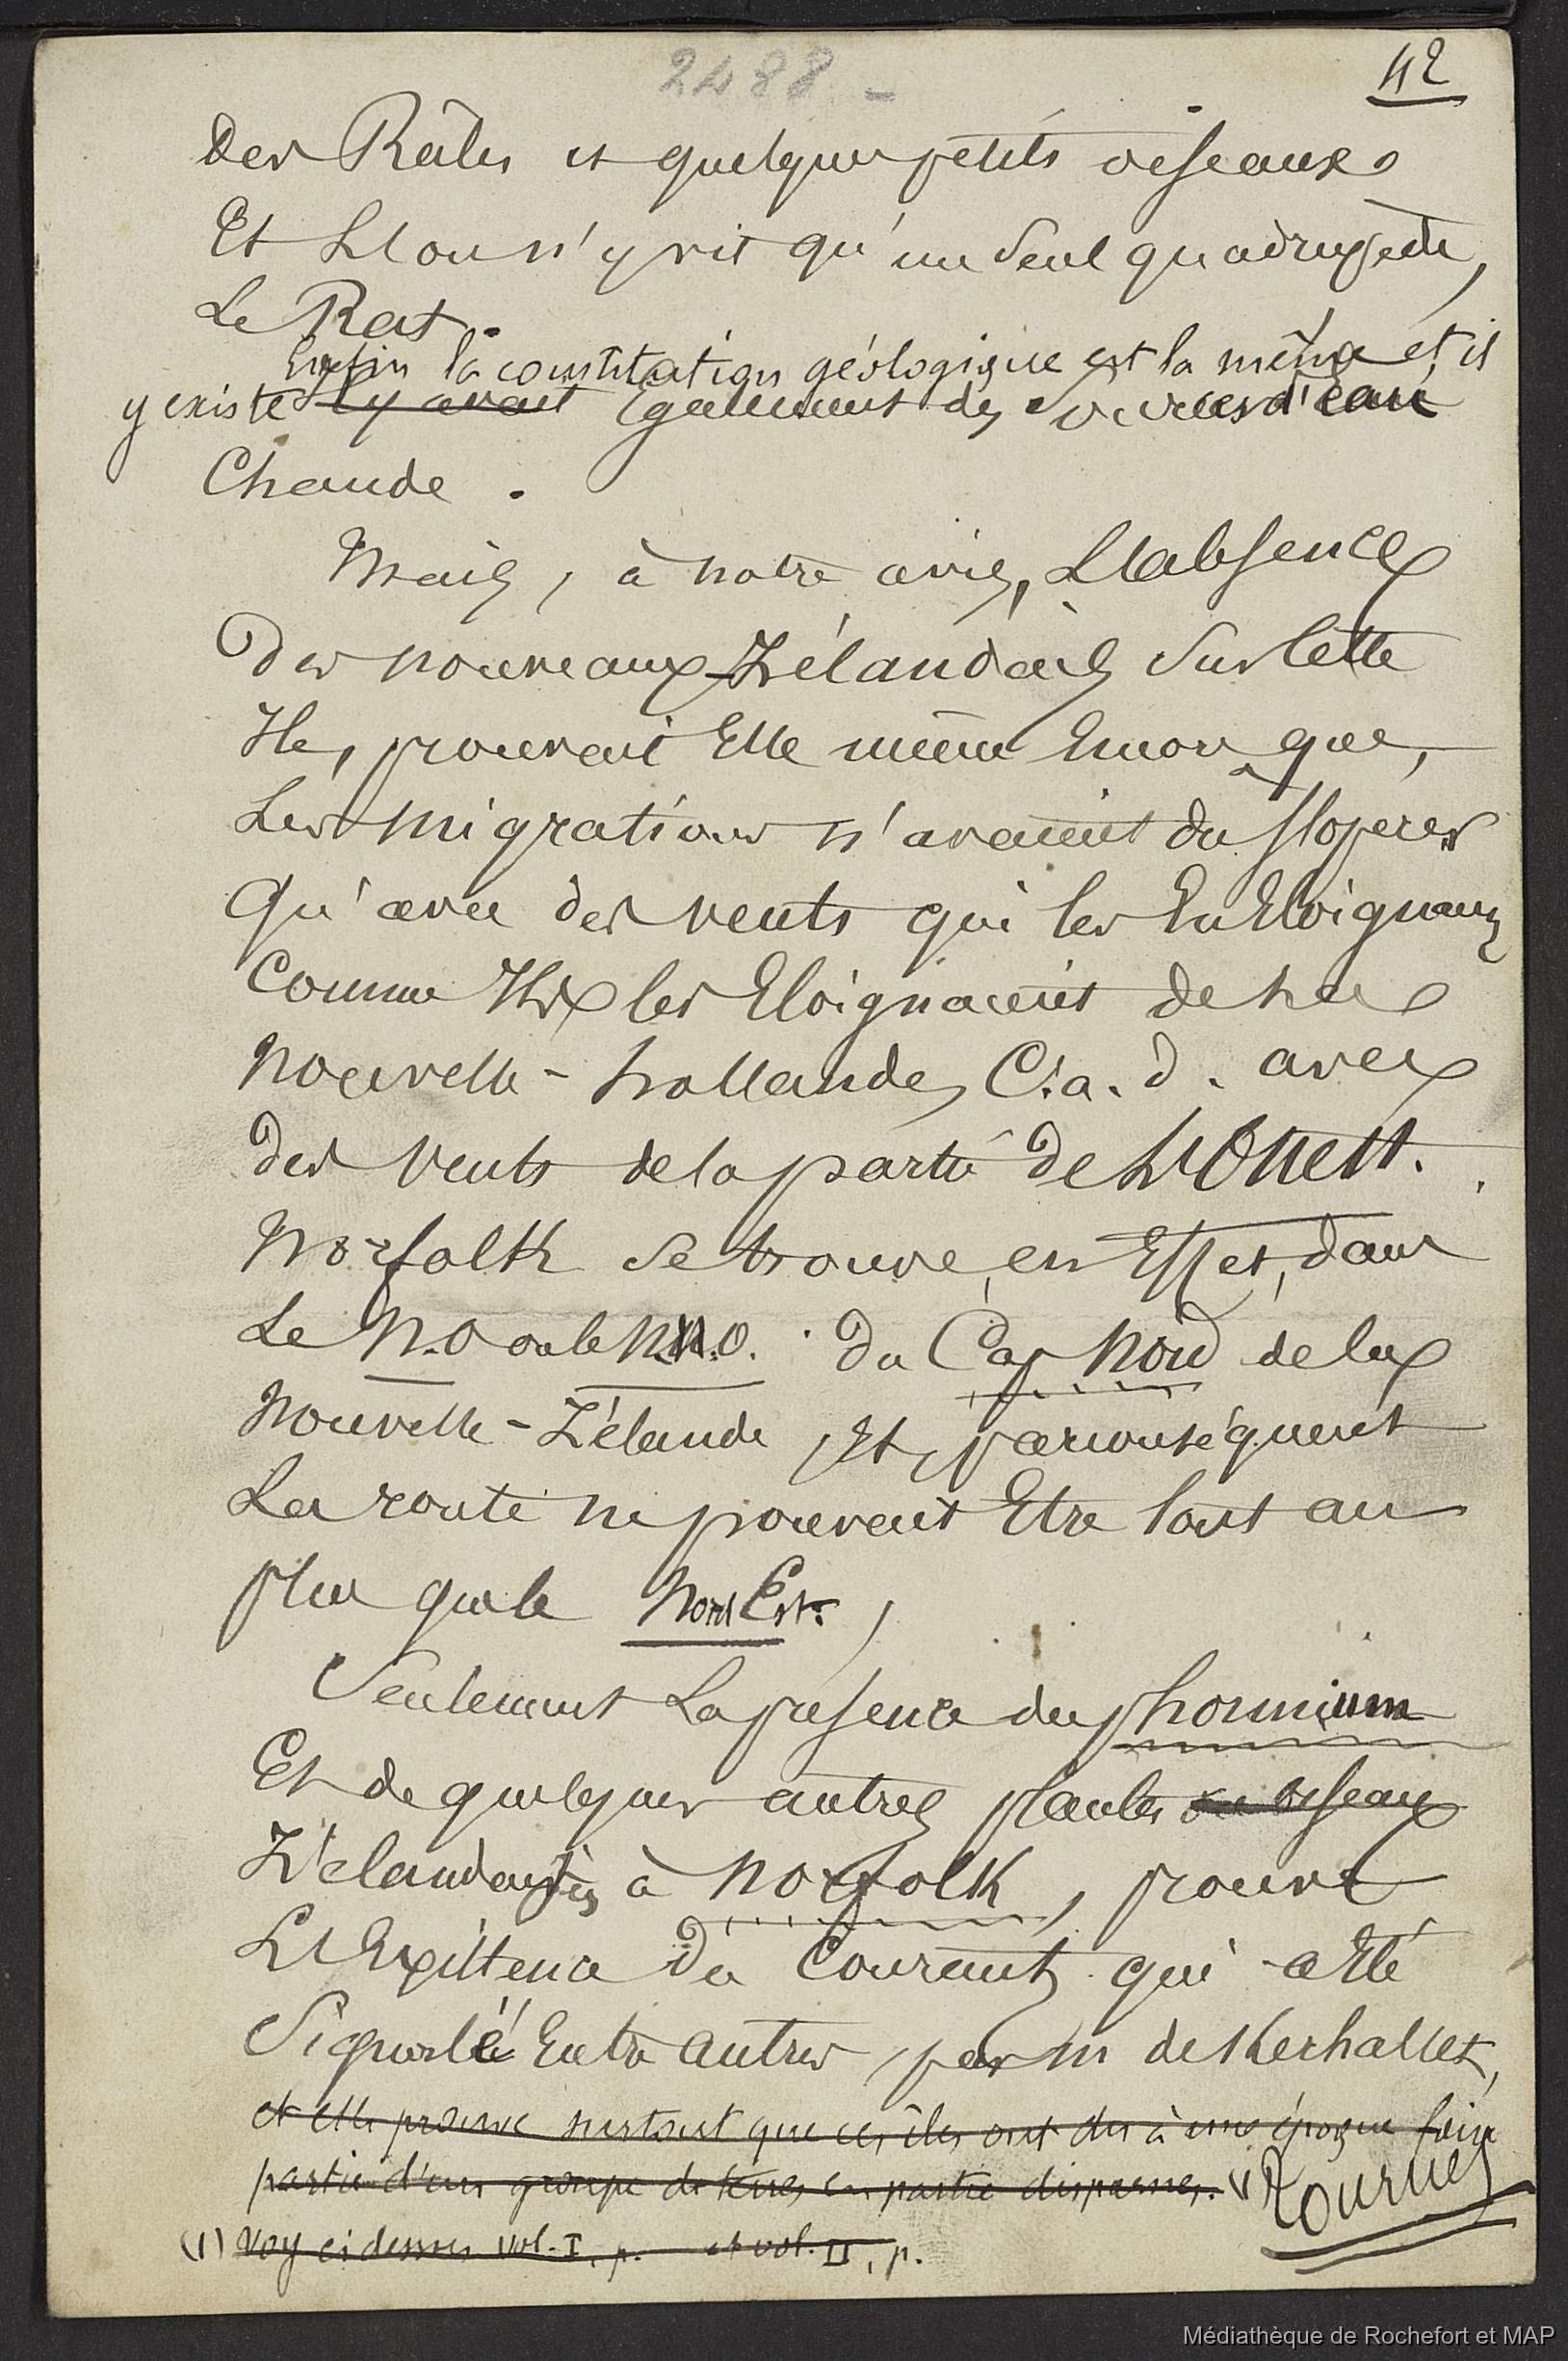 2488 -
42
des Râles et quelques petits oiseaux
Et L'on n'y vit qu'un seul quadrupède,
Le Rat.
Enfin la constitution géologique est la même et il
y existe il y avait Egalement des sources d'eau
Chaude.
Mais, à notre avis, L'absence
Des nouveaux-Zélandais sur cette
Ile, prouvait Elle même Encore que,
Les migrations n'avaient du s'opérer
Qu'avec des vents qui les En Eloignaient
Comme Ils les Eloignaient de la
Nouvelle-hollande, C.a.d. avec
des vents de la partie de L'Ouest.
Norfolk se trouve, en Effet, dans
Le N.O ou le N.N.O. du Cap Nord de la
Nouvelle-Zélande, Et, par conséquent
La route ne pouvait Etre tout au
plus que le Nord Est.
Seulement La présence du phormium
Et de quelques autres plantes ou oiseaux
Zélandaises à Norfolk, prouve
L'Existence du Courant qui a Eté
Signalé Entre autres, par M de Kerhallet,
et elle prouve surtout que ces îles ont du à une époque faire
partie d'un groupe de terres en partie disparues. (1)
Tournez
(1) Voy ci dessus vol. I, p. et vol. II, p.
Médiathèque de Rochefort et MAP